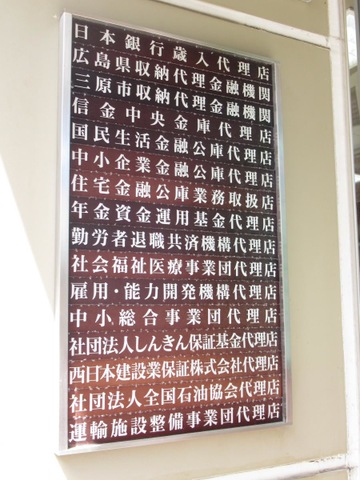 日本銀行歳入代理店
広島県収納代理金融機関
三原市収納代理金融機関
信金中央金庫代理店
国民生活金融公庫代理店
中小企業金融公庫代理店
住宅金融公庫業務取扱店
年金資金運用基金代理店
勤労者退職共済機構代理店
社会福祉医療事業団代理店
雇用・能力開発機構代理店
中小総合事業団代理店
社団法人しんきん保証基金代理店
西日本建設業保証株式会社代理店
社団法人全国石油協会代理店
運輸施設整備事業団代理店